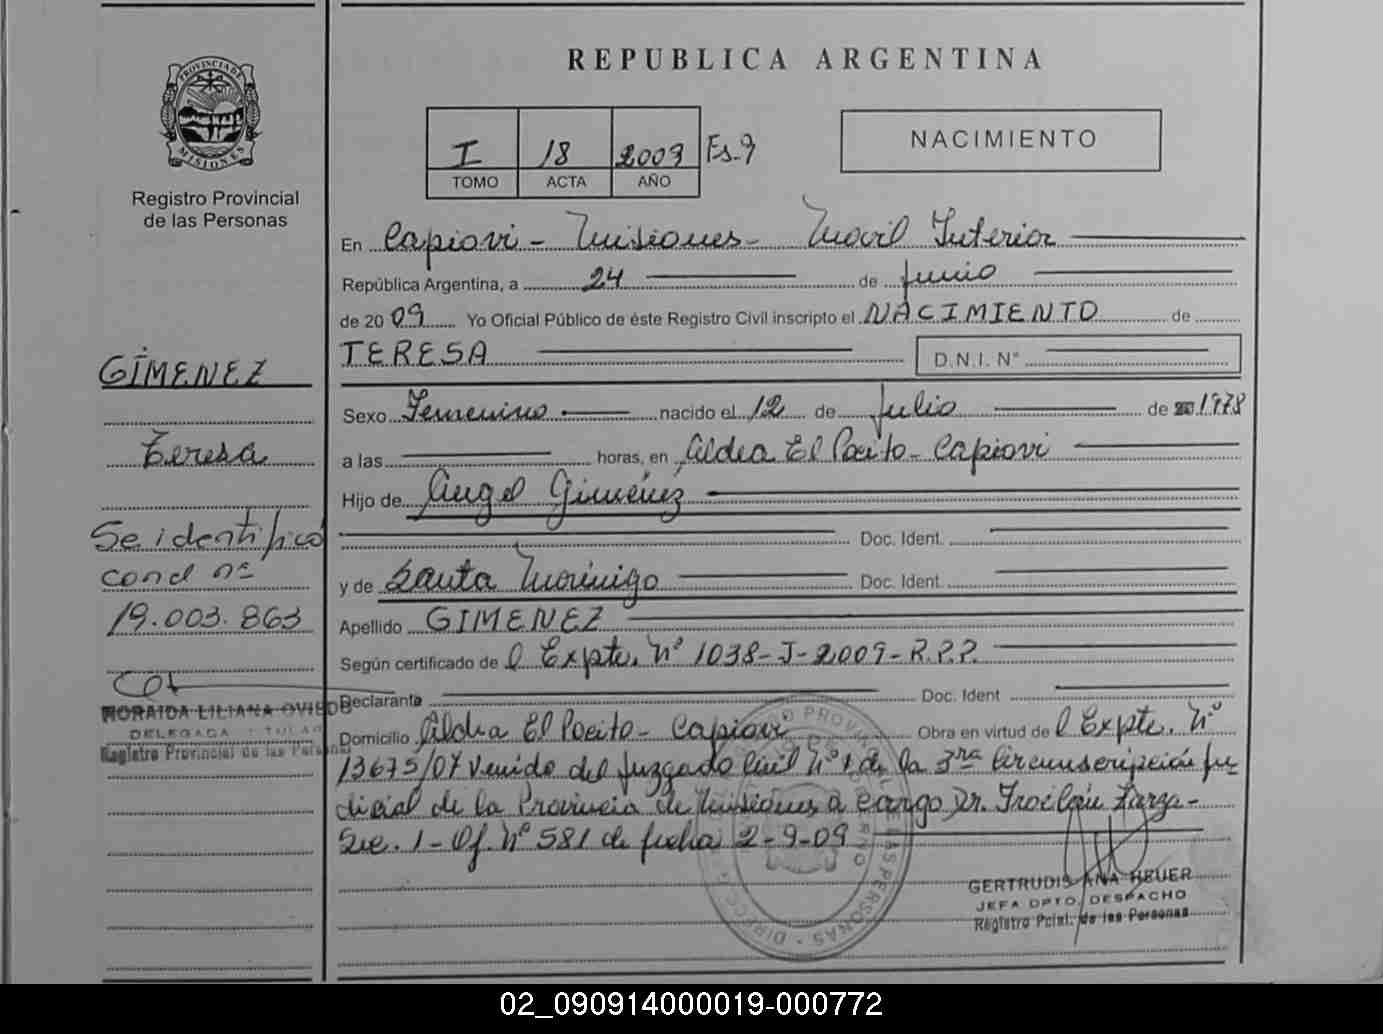 REPUBLICA ARGENTINA
PROVINCIA DE MISIONES
Registro Provincial
de las Personas
I 18 2009 Es-9
TOMO ACTA AÑO
NACIMIENTO
En Capiovi - Misiones - Movil Interior
República Argentina, a 24 de Junio
de 2009 Yo Oficial Público de éste Registro Civil inscripto el NACIMIENTO de
TERESA D.N.I. N°
Sexo Femenino nacido el 12 de Julio de 1978
a las horas, en Aldea El Pocito - Capiovi
Hijo de Angel Giménez
Doc. Ident.
y de Santa Morinigo Doc. Ident.
Apellido GIMENEZ
Según certificado de el Expte. N° 1038-J-2009-R.P.P.
Declarante Doc. Ident
Domicilio Aldea El Pocito - Capiovi Obra en virtud de el Expte. N°
13675/07 Venido del Juzgado Civil N° 1 de la 3ra Circunscripción Ju-
dicial de la Provincia de Misiones a cargo Dr.
Sec. 1 - Of. N° 581 de fecha 2-9-09
GERTRUDIS ANA HEUER
JEFA DPTO. DESPACHO
Registro Pcial. de las Personas
GIMENEZ
Teresa
Se identificó
con d nº
19.003.863
NORAIDA LILIANA OVIEDO
DELEGADA TITULAR
Registro Provincial de las Personas
02_090914000019-000772